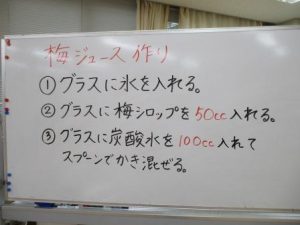 梅ジュース作り
①グラスに氷を入れる。
②グラスに梅シロップを50cc入れる。
③グラスに炭酸水を100cc入れて
スプーンでかき混ぜる。